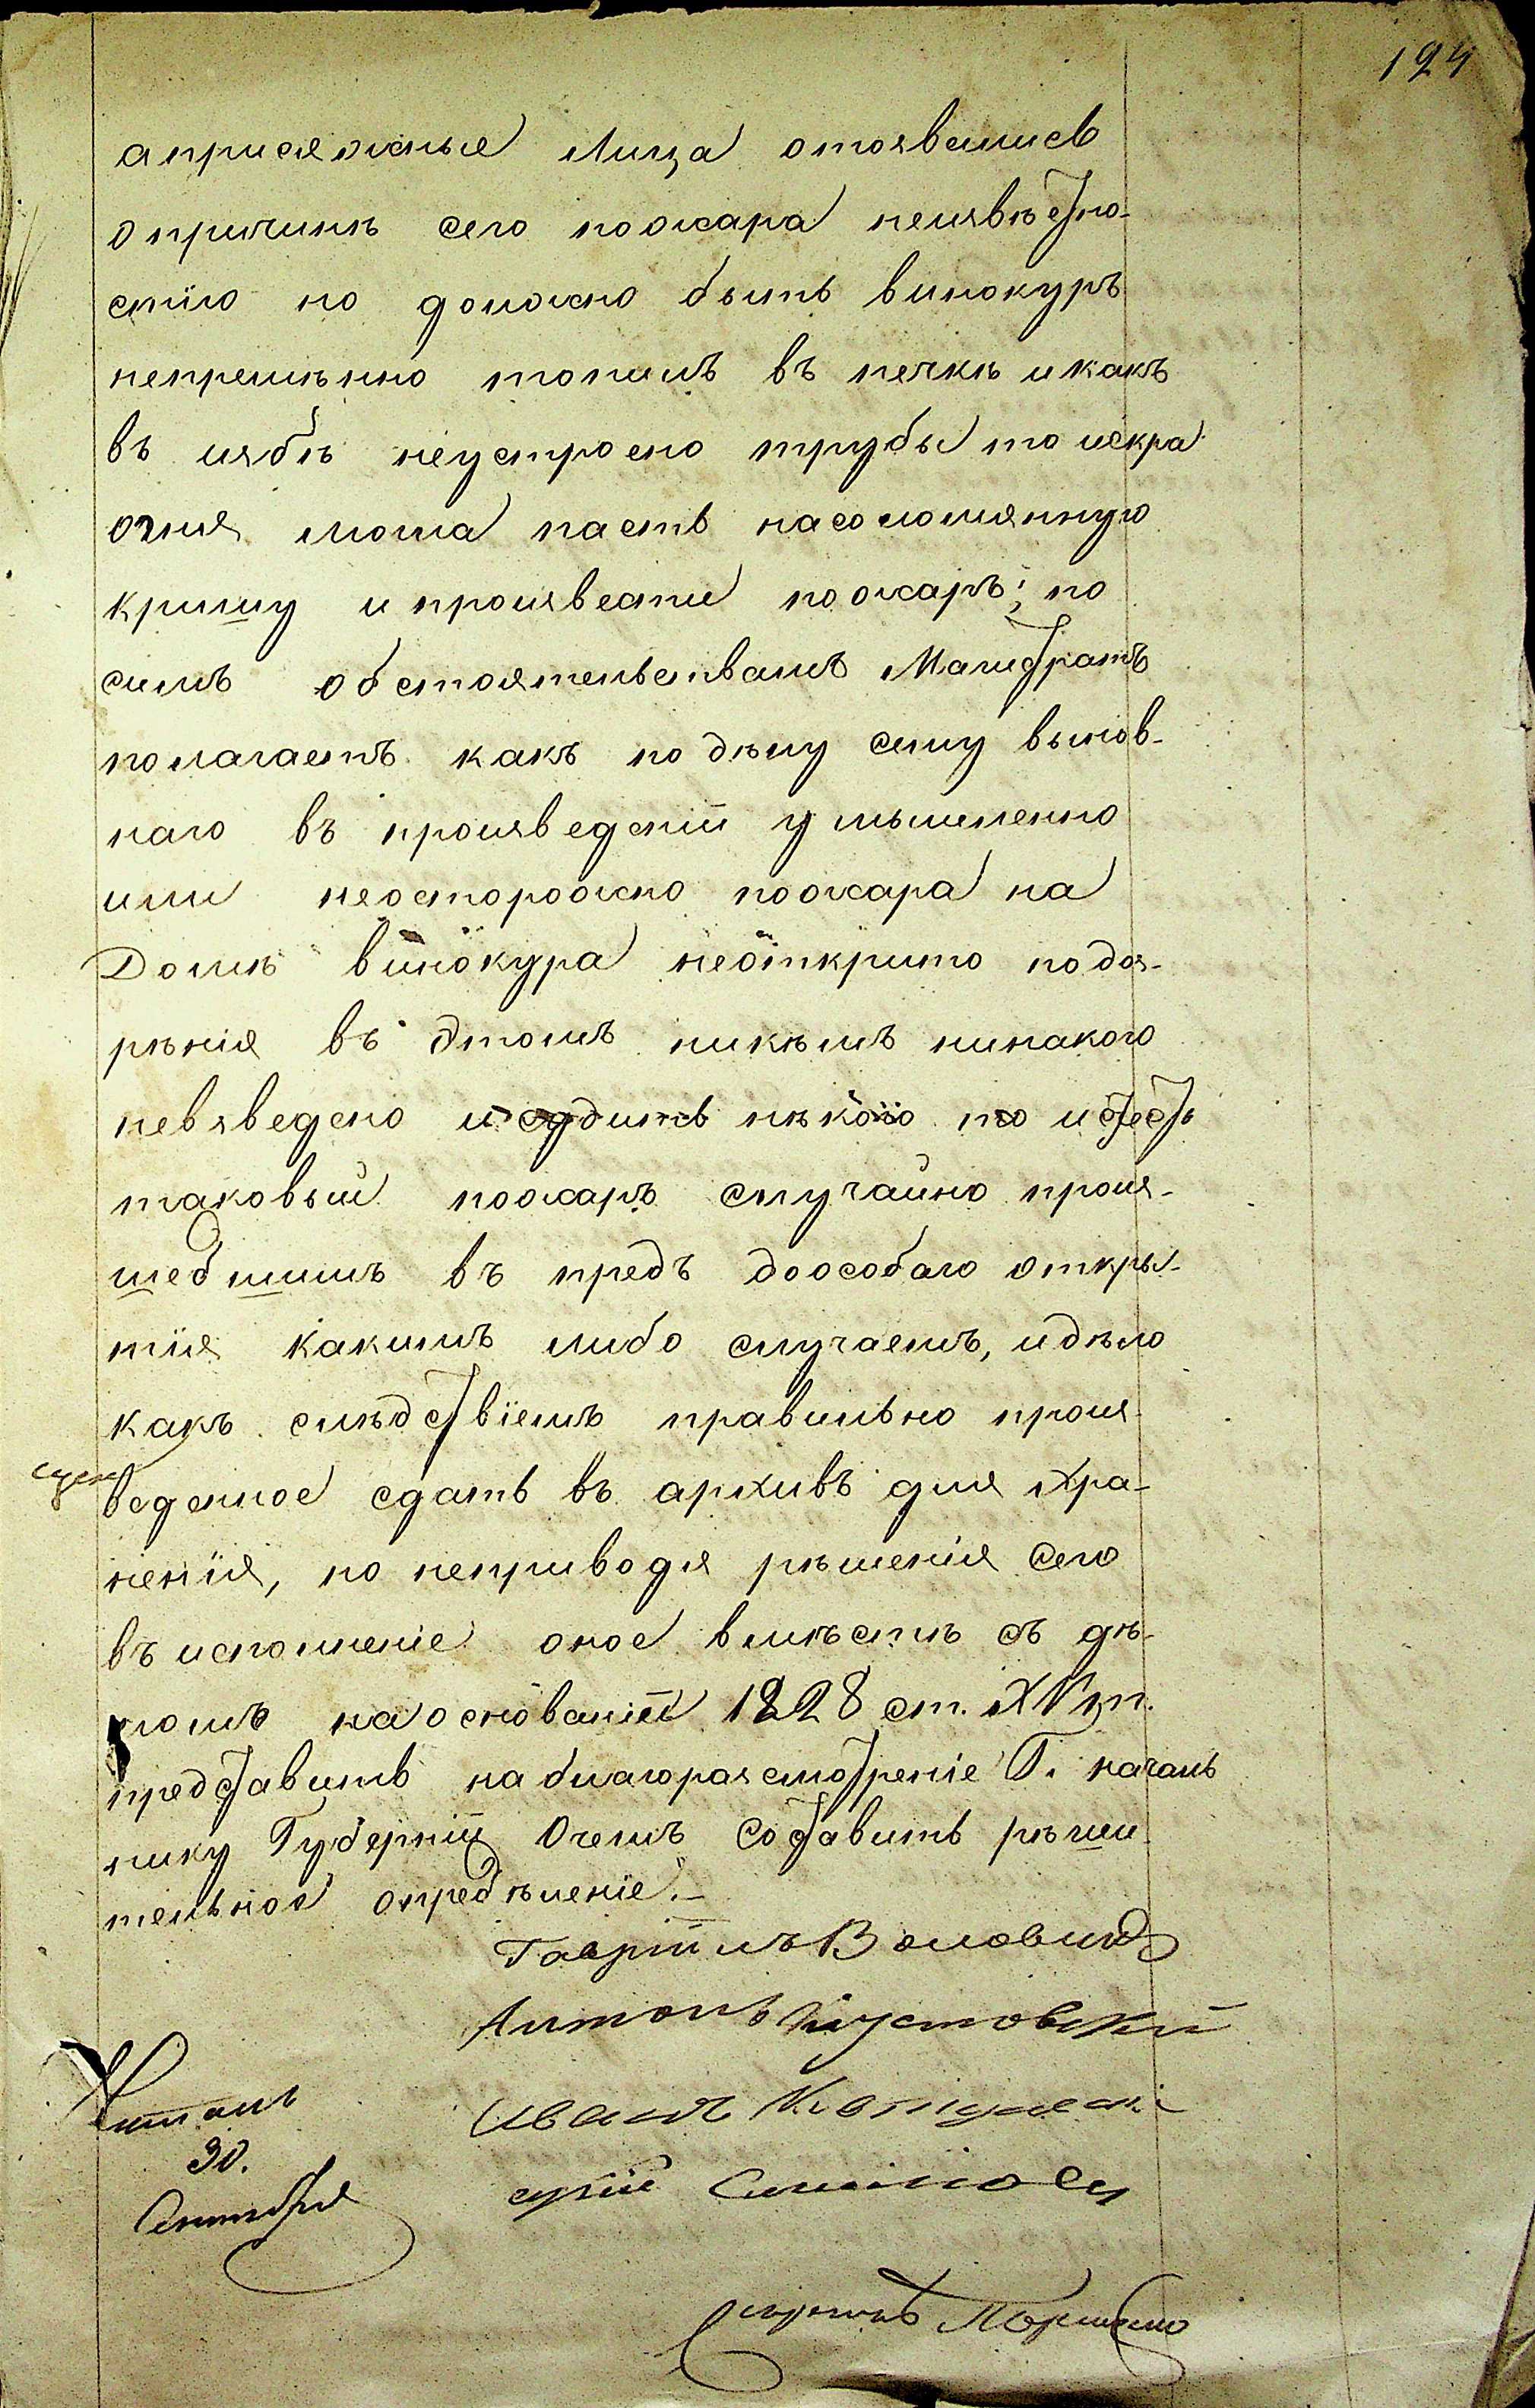 124
априсяжные лица отозвались
опричинѣ сего пожара неизвѣстно-
стію но должно быть винокуръ
непремѣнно топилъ въ печкѣ и какъ
въ избѣ неустроено трубы то искра
огня могла пасть насоломянную
кришу и произвести пожаръ; по
симъ обстоятельствамъ Магистратъ
полагаетъ какъ по дѣлу сему вынов-
наго въ произведеніи умышленно
или неосторожно пожара на
Домѣ винокура неоткрито подоз-
рѣнія въ этомъ никѣмъ никакого
невзведено и судить нѣкого то и счесть
таковый пожаръ случайно произ-
шедшимъ въ предъ доособаго откры-
тія какимъ либо случаемъ, и дѣло
какъ слѣдствіемъ правильно произ-
веденное сдать въ архивъ для хра-
ненія, но неприводя рѣшенія сего
въ исполненіе оное вмѣстѣ съ дѣ-
ломъ на основаніи 1228 ст. XV т.
представить на благоразсмотреніе Г. началь
нику Губерніи Очемъ Составить рѣши
тельное опредѣленіе.
Гавріилъ
Антонъ
Иванъ
30.
Сентября